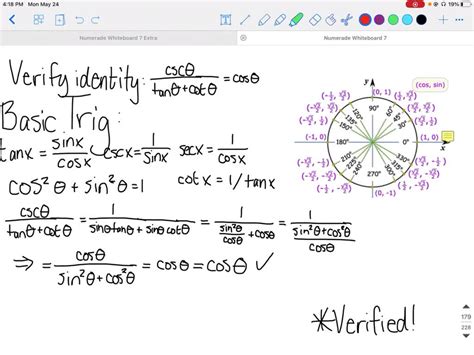 4:18 PM Mon May 24
19%
Numerade Whiteboard 7 Extra
Numerade Whiteboard 7
Verify identity: cscθ / (tanθ + cotθ) = cosθ
Basic Trig:
tanx = sinx / cosx cscx = 1 / sinx secx = 1 / cosx
cos²θ + sin²θ = 1 cotx = 1/tanx
cscθ / (tanθ + cotθ) = 1 / (sinθtanθ + sinθcotθ) = 1 / (sin²θ/cosθ + cosθ) = 1 / ((sin²θ + cos²θ)/cosθ)
⇒ = cosθ / (sin²θ + cos²θ) = cosθ = cosθ ✓
*Verified!
(cos, sin)
y
(0, 1)
90°
120°
135°
150°
45°
30°
(-1, 0)
180°
0°
(1, 0)
x
210°
225°
240°
270°
330°
(0, -1)
179
228